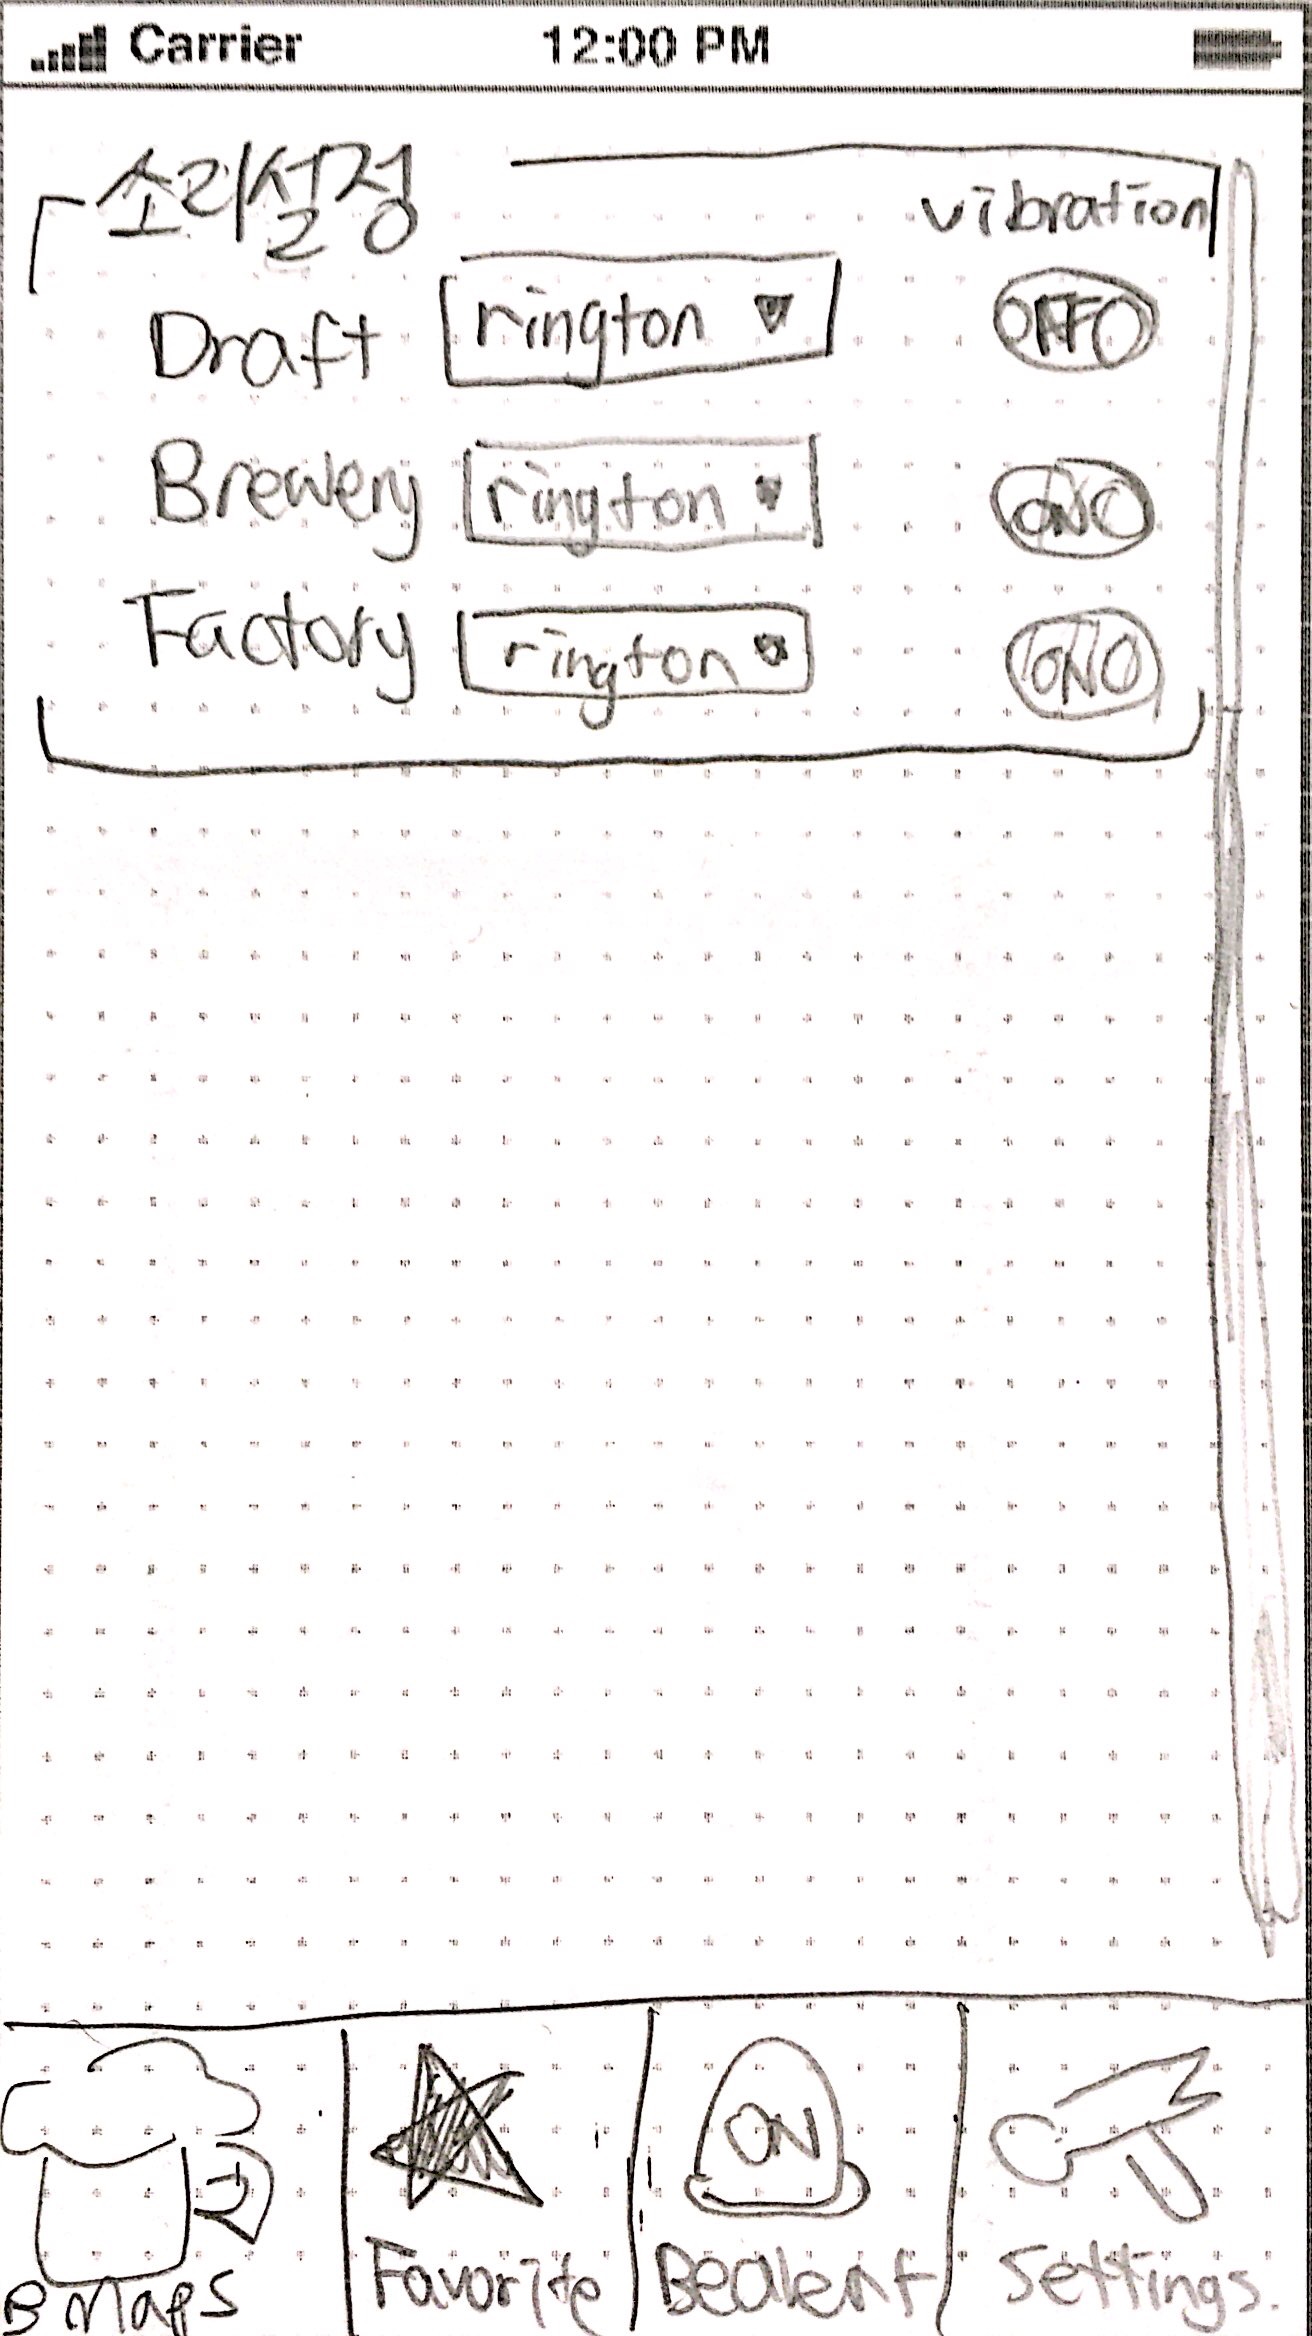 Carrier 12:00 PM
소리설정
vibration
Draft rington OFF
Brewery rington ON
Factory rington ON
ON
B Maps Favorite Bealert Settings.